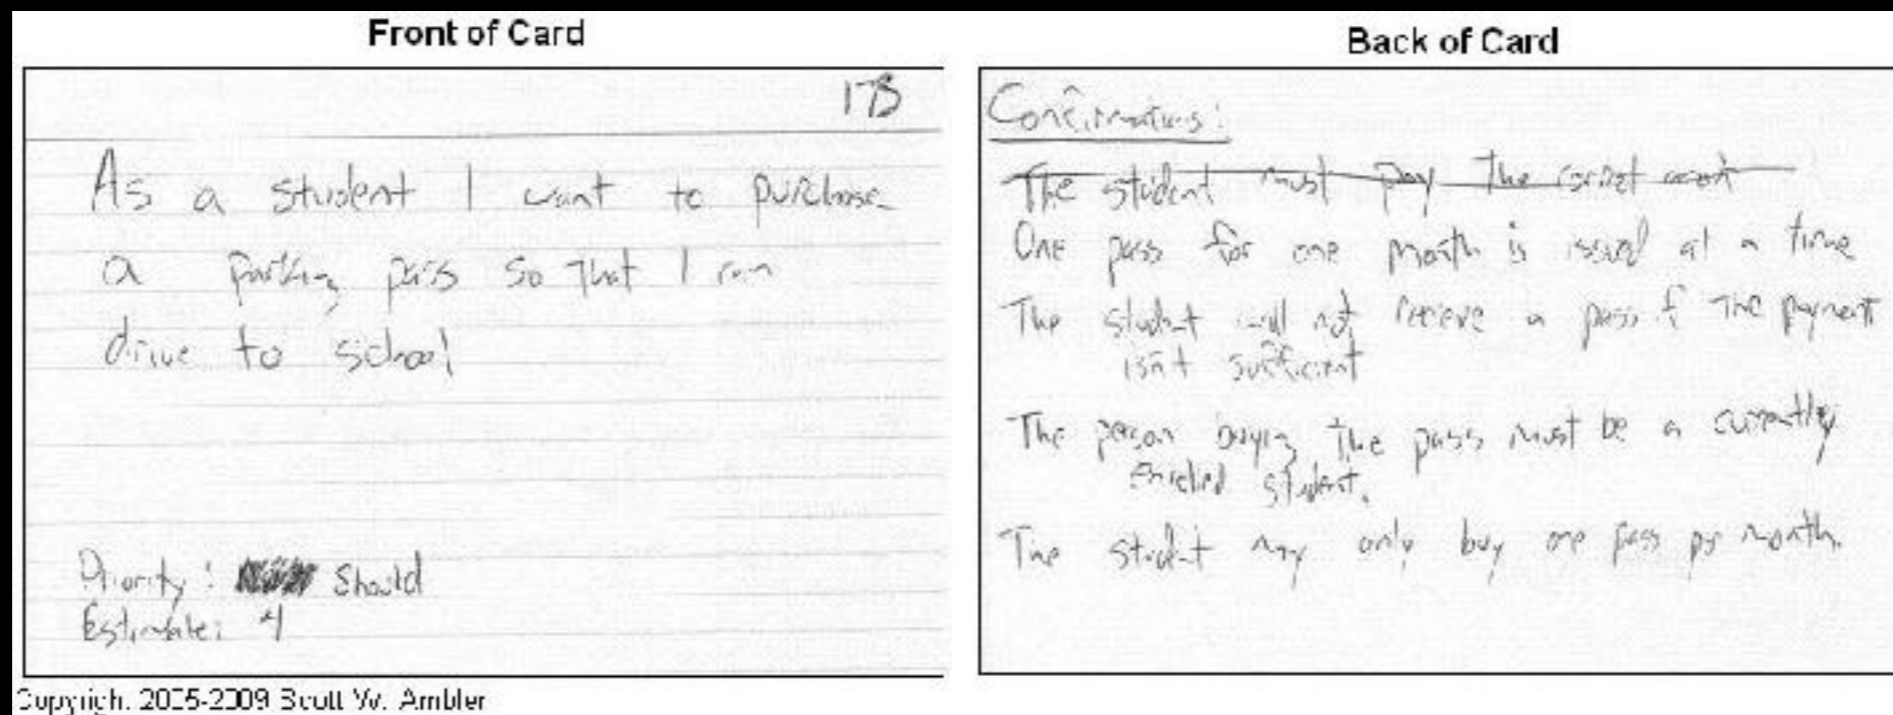 Front of Card
173
As a student I want to purchase
a parking pass so that I can
drive to school
Priority: Should
Estimate: 4
Copyright 2005-2009 Scott W. Ambler
Back of Card
Confirmations:
The student must pay the correct amount
One pass for one month is issued at a time
The student will not receive a pass if the payment
isn't sufficient
The person buying the pass must be a currently
enrolled student.
The student may only buy one pass per month.